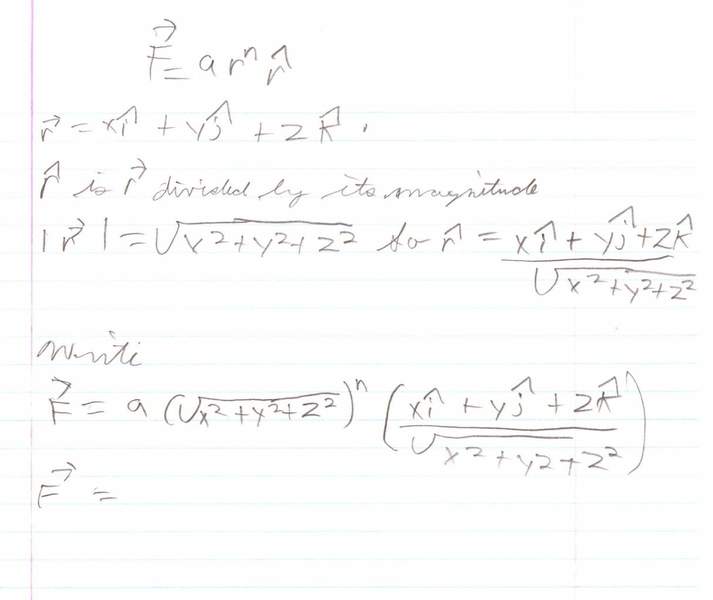 F⃗ = a rⁿ r̂
r⃗ = xî + yĵ + zk̂.
r̂ is r⃗ divided by its magnitude
|r⃗| = √(x²+y²+z²) so r̂ = (xî + yĵ + zk̂)/√(x²+y²+z²)
Write
F⃗ = a (√(x²+y²+z²))ⁿ ((xî + yĵ + zk̂)/√(x²+y²+z²))
F⃗ =